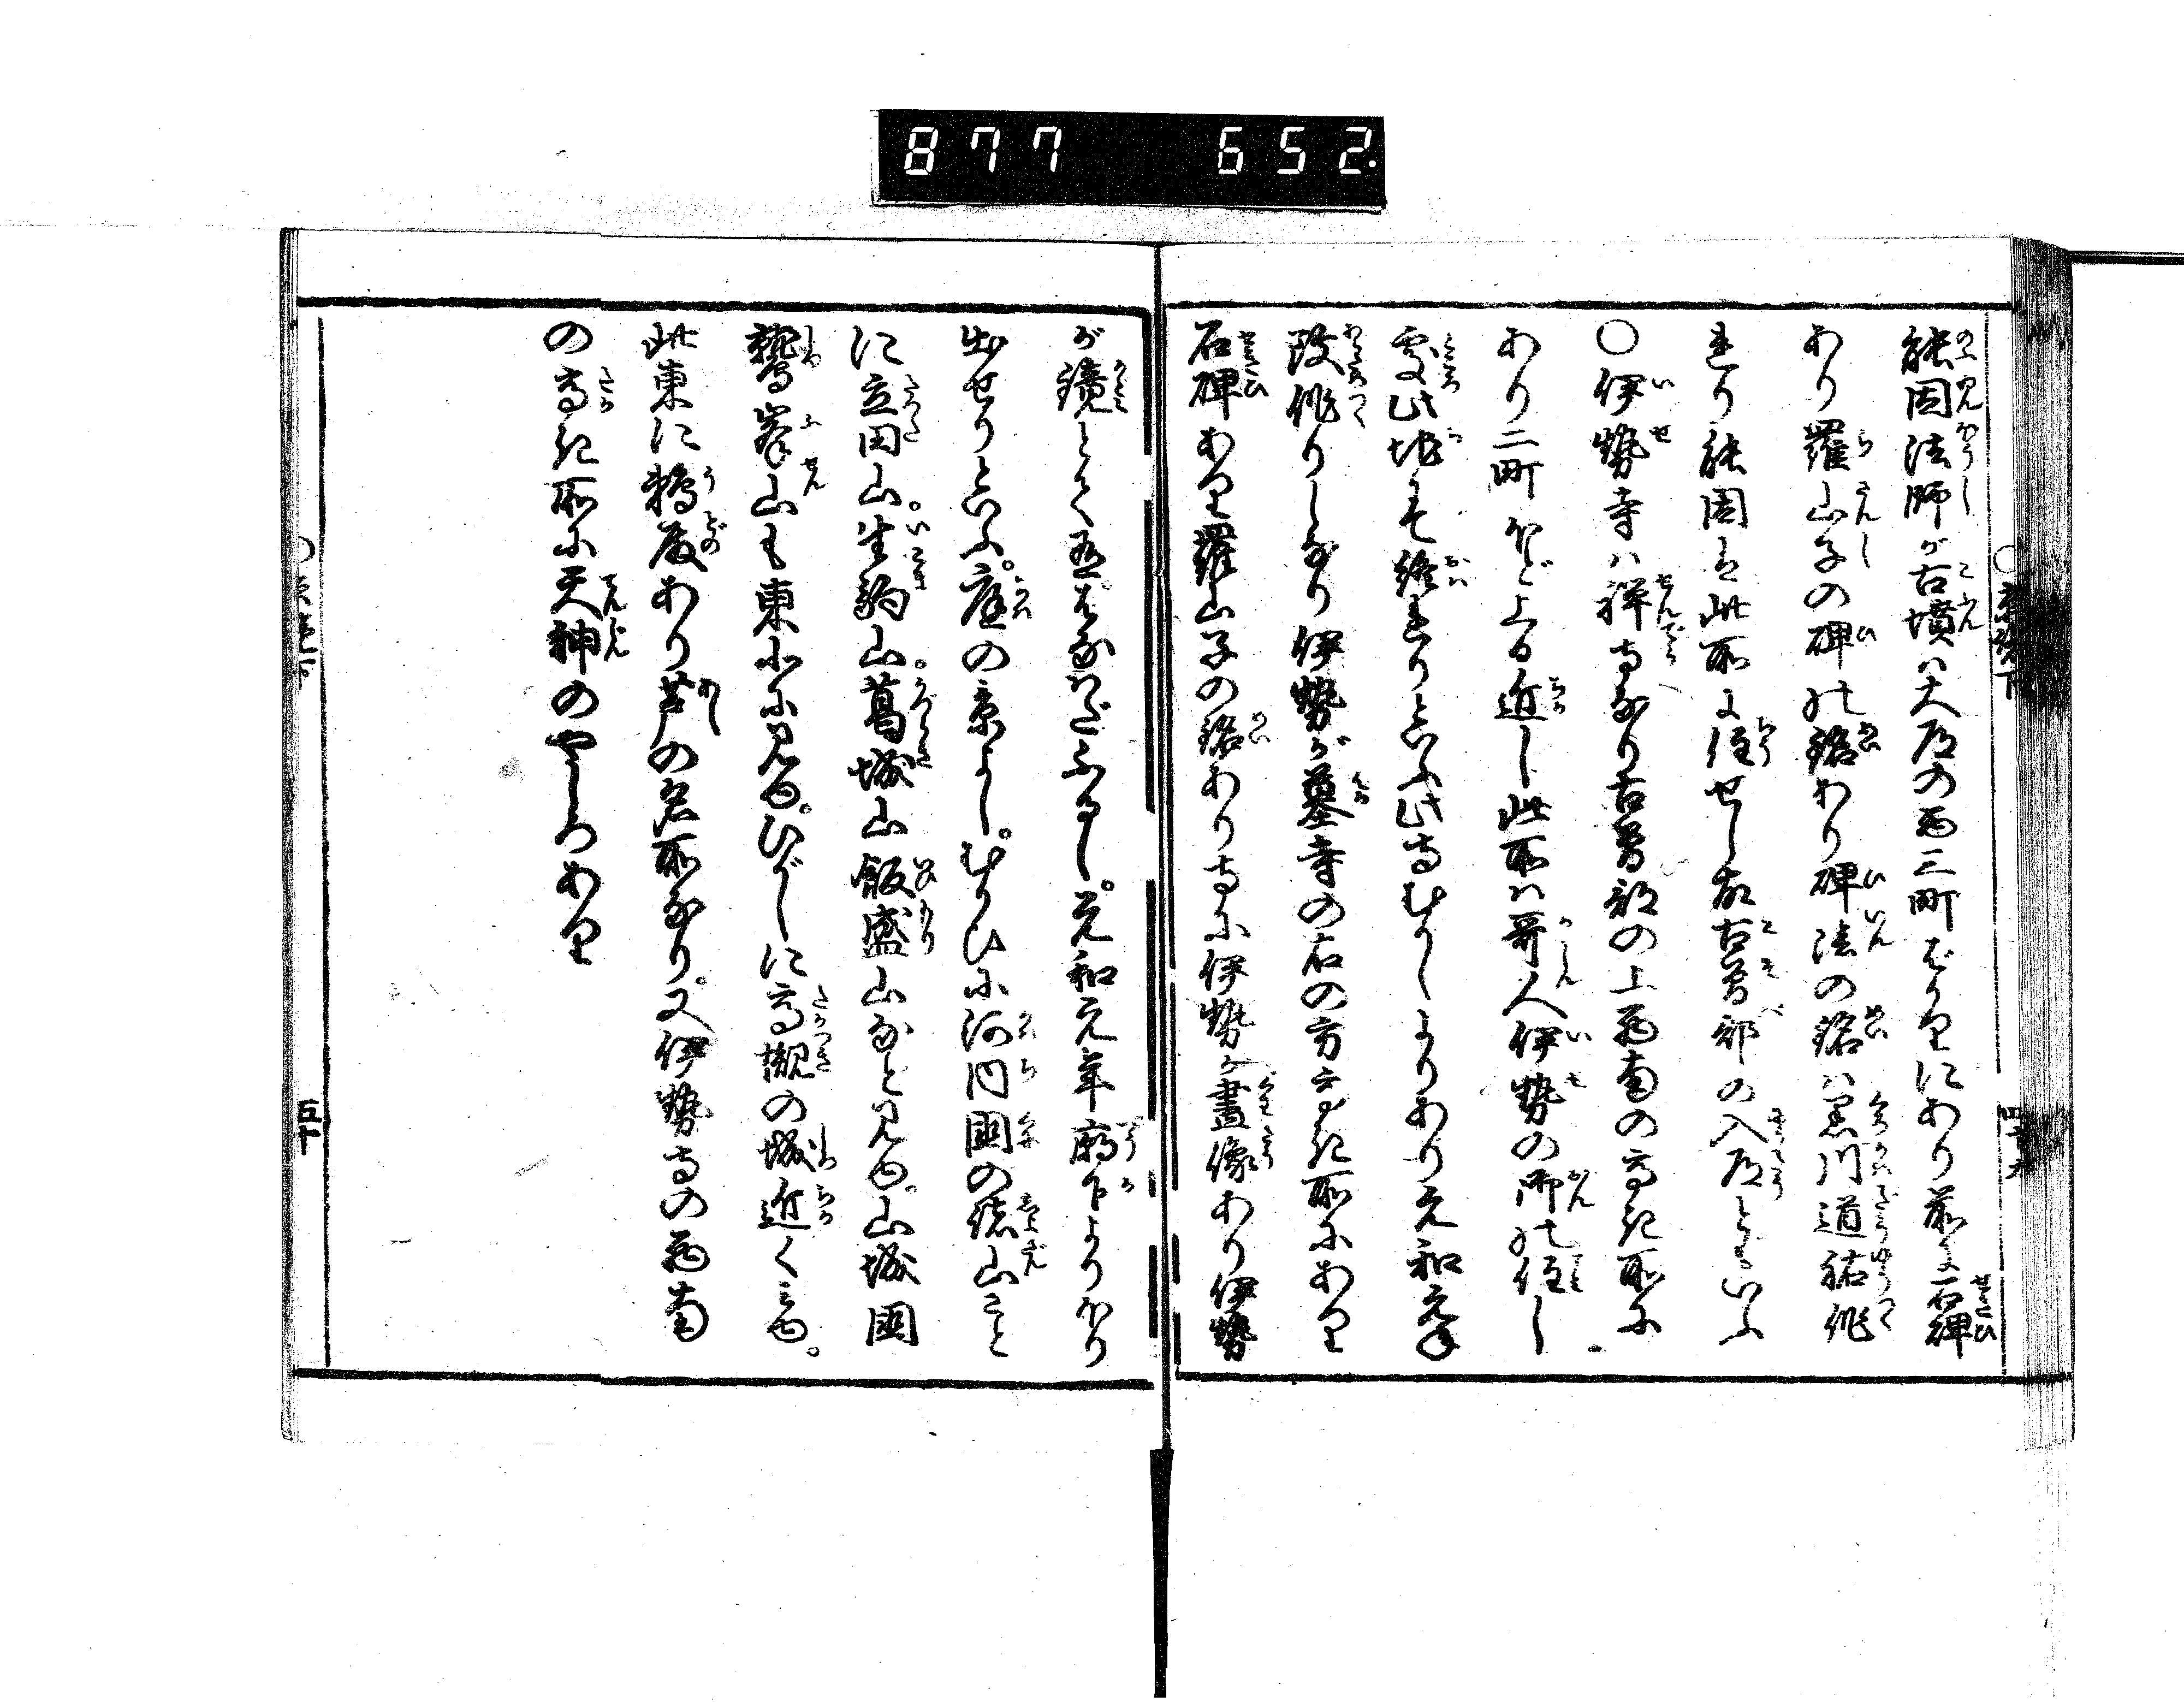 877 652.
能因法師が古墳は大道の西三町ばかりにあり前に石碑
あり羅山子の碑の銘あり碑法の銘は黒川道祐作
れり能因は此所に住せし故古曽部の入道とはいふ
○伊勢寺は禅寺なり古曽部の上西南の高き所に
あり二町ほど上る近し此所は哥人伊勢の御の住し
処此地にて終れりといふ此寺むかしよりあり元和元年
改作りしなり伊勢が墓寺の右の方高き所にあり
石碑あり羅山子の銘あり寺に伊勢が畫像あり伊勢
が鏡とて はなはだふるし。元和元年廟下よりほり
出せりといふ。庭の景よし。むかひに河内國の諸山こと
に立田山。生駒山。葛城山飯盛山など見ゆ。山城國
鷲峯山も東北に見ゆ。ひがしに高槻の城近くみゆ。
此東に鵜殿あり芦の名所なり。又伊勢寺の西南
の高き所に天神のやしろあり
五十